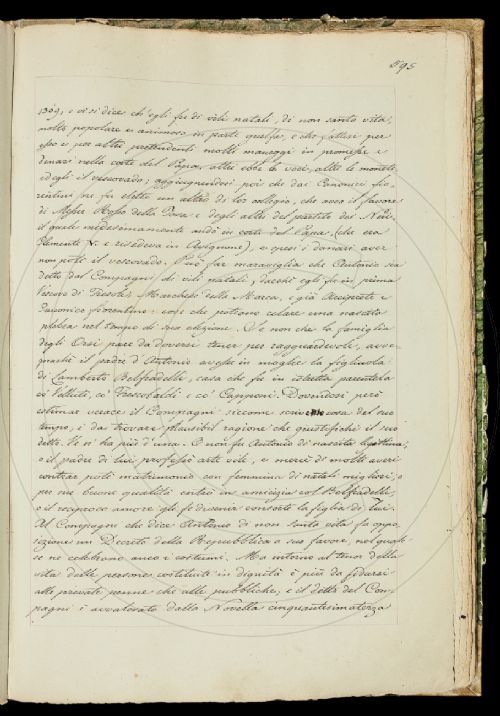 95
1309, e vi si dice ch'egli fu di vili natali, di non santa vita,
molto popolare e animoso in parte guelfa, e che
esso e per altri pretendenti molti maneggi in promesse e
danari nella corte del Papa, altri ebbe le voci, altri le monete,
ed egli il vescovado; aggiungendovi poi che dai Canonici fio-
rentini ne fu eletto un altro di lor collegio, che avea il favore
di Messer Rosso della Tosa e degli altri del partito dei Neri,
il quale medesimamente andò in corte del Papa (che era
Clemente V. e risiedeva in Avignone), e spesi i danari aver
non potè il vescovado. Può far maraviglia che Antonio sia
detto dal Compagni di vili natali, dacchè egli fu in prima
Vescovo di Fiesole, Marchese della Marca, e già Arciprete e
Canonico fiorentino: cose che potieno celare una nascita
plebea nel tempo di sua elezione. Se non che la famiglia
degli Orsi pare da doversi tener per ragguardevole, avve-
gnachè il padre d'Antonio avesse in moglie la figliuola
di Lamberto Belfradelli, casa che fu in istretta parentela
co' Velluti, co' Frescobaldi e co' Capponi. Dovendosi però
estimar verace il Compagni siccome scrivente cosa del suo
tempo, è da trovare plausibil ragione che giustifichi il suo
detto. Vi si ha più d'una. O non fu Antonio di nascita legittima,
o il padre di lui professò arte vile, e mercè di molti averi
contrar potè matrimonio con femmina di natali migliori, o
per sue buone qualità entrò in amicizia col Belfradelli,
o il reciproco amore gli fe divenir consorte la figlia di lui.
Al Compagni che dice Antonio di non santa vita fa oppo-
sizione un Decreto della Repubblica a suo favore, nel qual
se ne celebrano anco i costumi. Ma intorno al tenor della
vita delle persone costituite in dignità è più da fidarsi
alle private penne che alle pubbliche, e il detto del Com-
pagni è avvalorato dalla Novella cinquantesimaterza